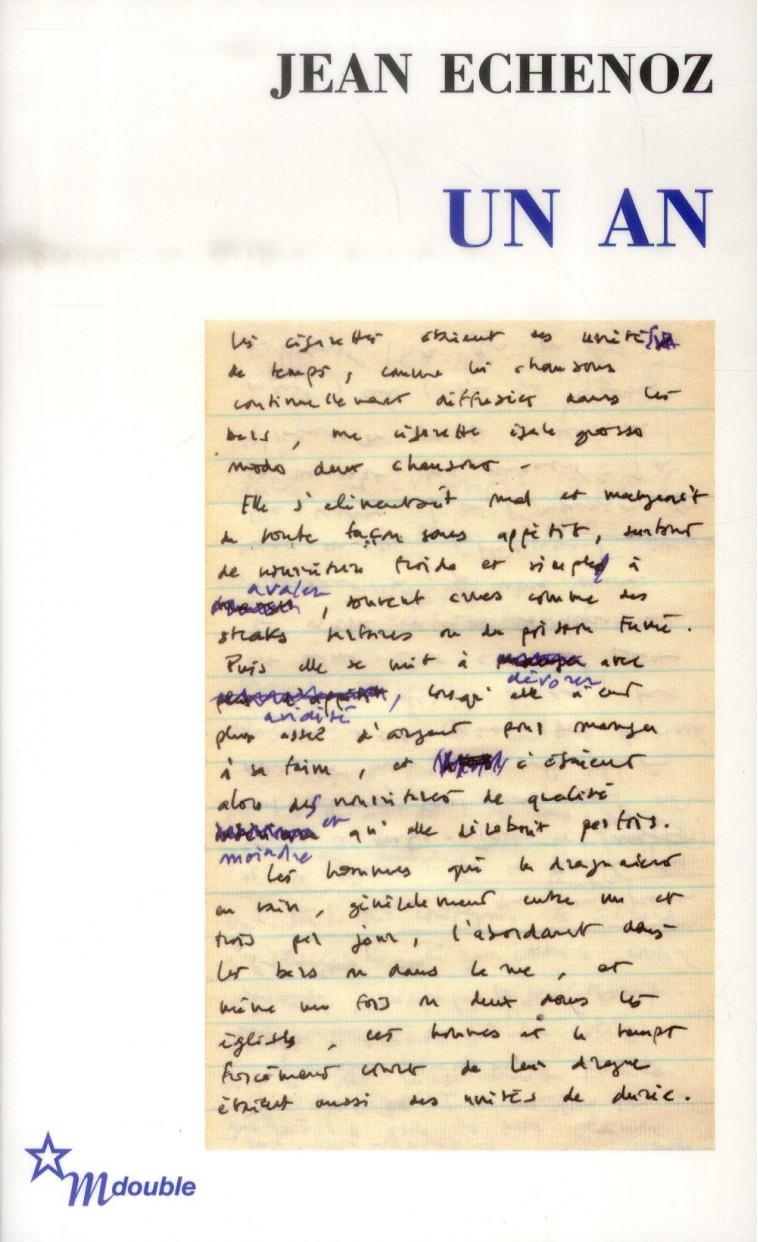 JEAN ECHENOZ
UN AN
Les cigarettes étaient des unités
de temps, comme les chansons
continuellement diffusées dans les
bars, une cigarette égale grosso
modo deux chansons.
Elle s'alimentait mal et mangeait
de toute façon sans appétit, surtout
de nourriture froide et simple à
avaler
, souvent crues comme des
steaks tartares ou du poisson fumé.
Puis elle se mit à avec
dévorer
, lorsqu'elle n'eut
avidité
plus assez d'argent pour manger
à sa faim, et c'étaient
alors des nourritures de qualité
et qu'elle dérobait parfois.
moindre
Les hommes qui la draguaient
en vain, généralement entre un et
trois par jour, l'abordant dans
les bars ou dans la rue, et
même une fois ou deux dans les
églises, ces hommes et le temps
forcément court de leur drague
étaient aussi des unités de durée.
m double